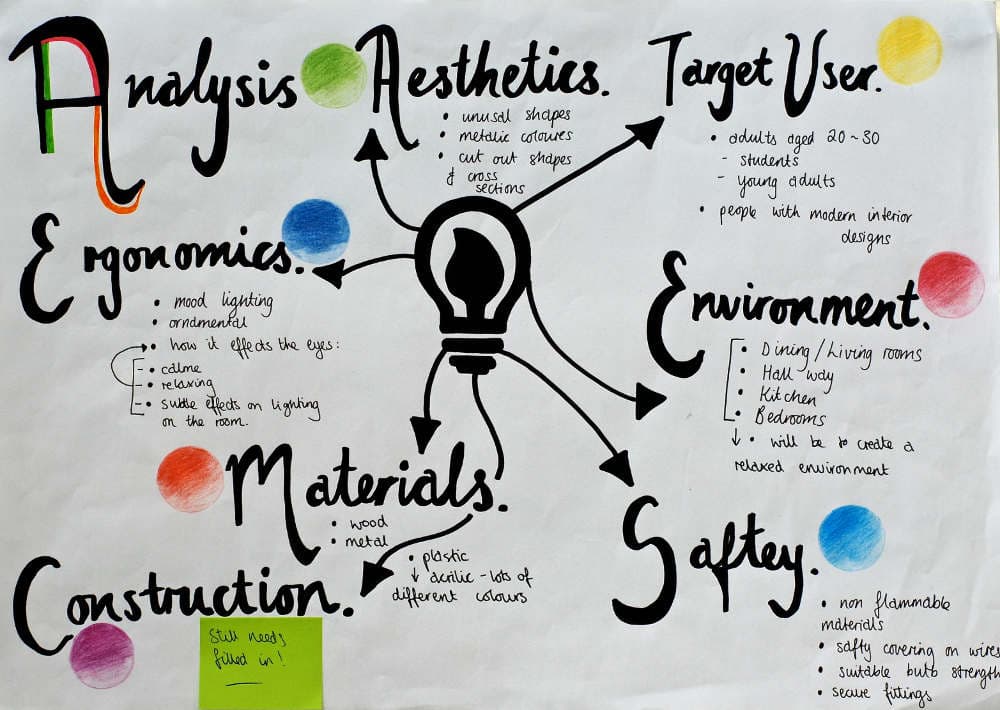 Analysis
Aesthetics.
• unusal shapes
• metalic colours
• cut out shapes
& cross
sections
Target User.
• adults aged 20~30
- students
- young adults
• people with modern interior
designs
Ergonomics.
• mood lighting
• orndmental
• how it effects the eyes:
- • calme
- • relaxing
- • subtle effects on lighting
on the room.
Environment.
• Dining / Living rooms
• Hall way
• Kitchen
• Bedrooms
↓ • will be to create a
relaxed environment
Materials.
• wood
• metal
• plastic
↓ acrilic - lots of
different colours
Saftey.
• non flammable
materials
• safty covering on wires
• suitable bulb strength
• secure fittings
Construction.
Still needs
filled in!